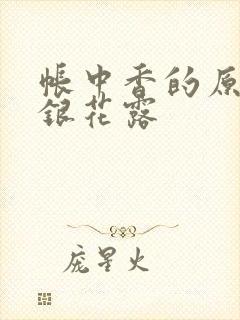 帳中香的原
銀花露
庞星火